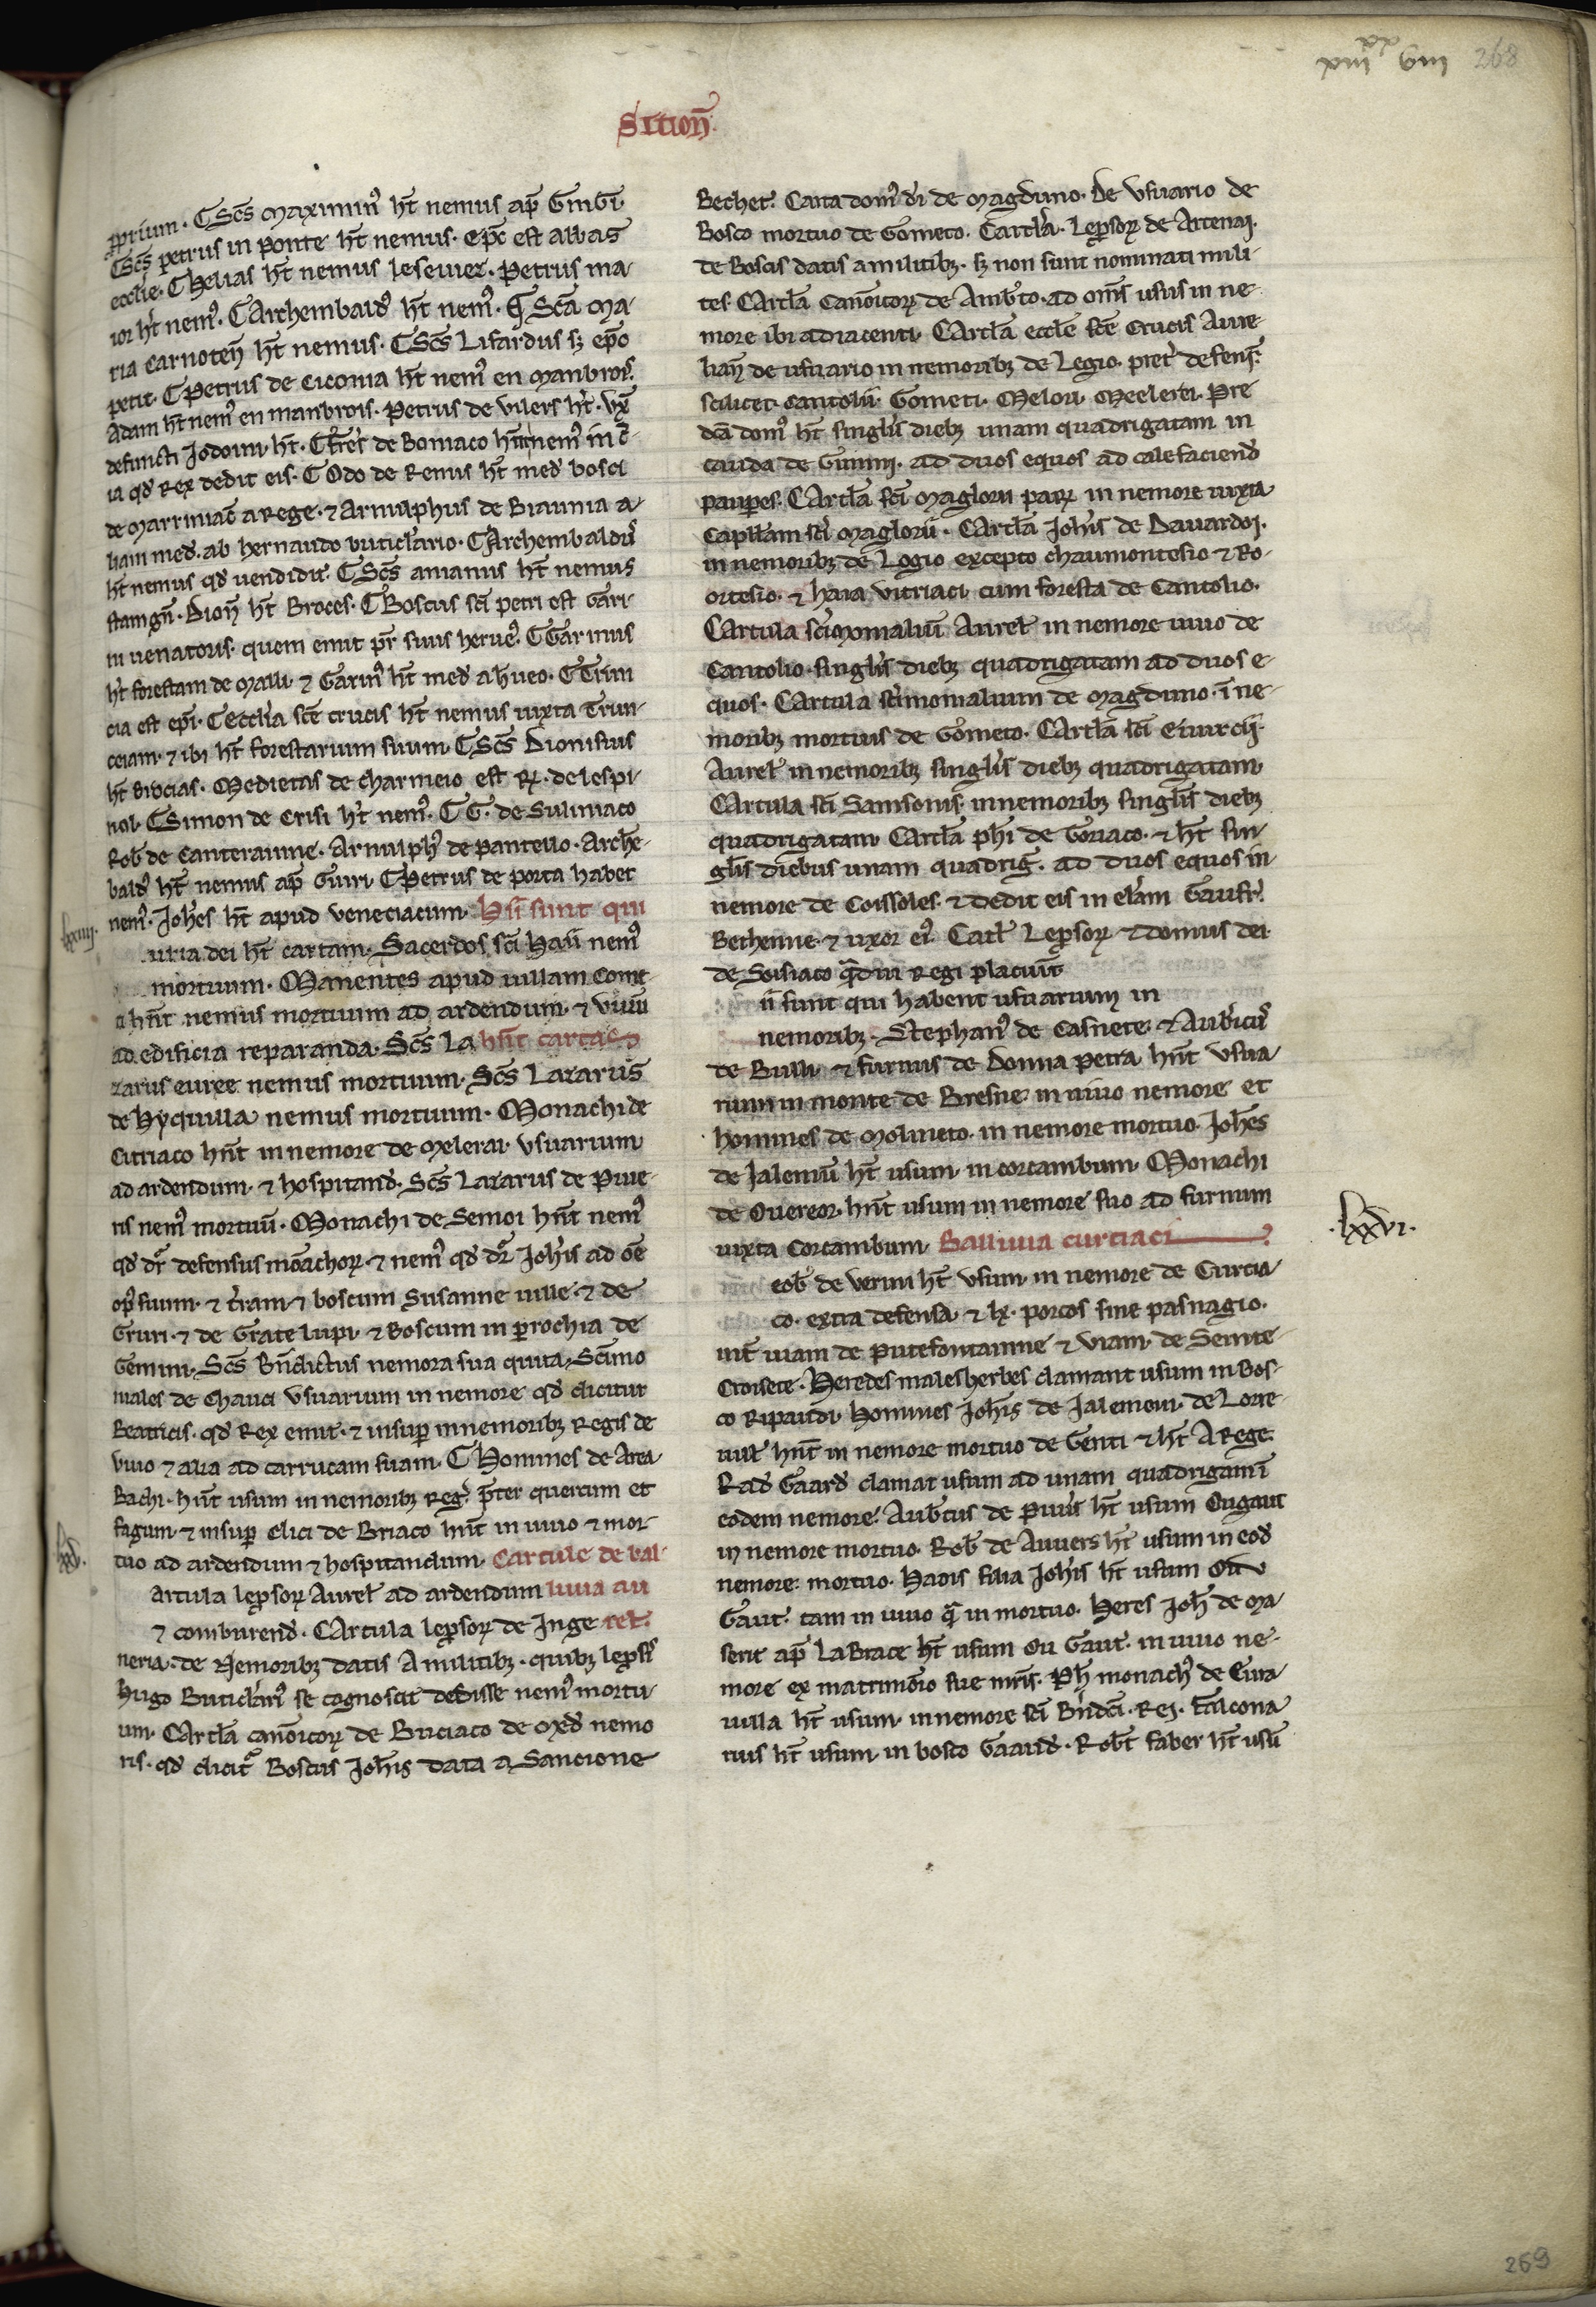 xiii xx viii 268
Sition̄.
prium. ⸿ Sc̄s Maximin᷒ ht̄ nemus ap̄
⸿ Sc̄s petrus in ponte ht̄ nemus. ep̄c est abbas
eccl̄ie. ⸿ Helias ht̄ nemus leseuier. Petrus ma-
ior ht̄ nem᷒. ⸿ Archembald᷒ ht̄ nem᷒. ⸿ Sc̄a Ma-
ria carnoten̄ ht̄ nemus. ⸿ Sc̄s Lifardus sꝫ ep̄o
petit. ⸿ Petrus de Ciconia ht̄ nem᷒ en Manbrois.
Adam ht̄ nem᷒ en manbrois. Petrus de vilers ht̄. vx̄
defuncti Jodoini ht̄. ⸿ Fr̄es de Boniaco hn̄t nem᷒ in
ia qd̄ Rex dedit eis. ⸿ Odo de Remis ht̄ med̄ bosci
de Marriniac̄ a Rege. ⁊ Arnulphus de Biaunia a-
liam med̄. ab hernaudo buticl̄ario. ⸿ Archembaldus
ht̄ nemus qd̄ uendidit. ⸿ Sc̄s anianus ht̄ nemus
stamgn̄. Dion̄ ht̄ Broces. ⸿ Boscus sc̄i petri est Gari-
ni uenatoris. quem emit pr̄ suus herue᷒. ⸿ Garinus
ht̄ forestam de Malli. ⁊ Garin᷒ ht̄ med̄ ahueo. ⸿ Trun
cia est ep̄i. ⸿ Eccl̄ia sc̄e crucis ht̄ nemus iuxta Trun-
ceiam. ⁊ ibi ht̄ forestarium suum. ⸿ Sc̄s Dionisius
ht̄ bibcias. Medietas de charmeio est Rꝫ. de lespi-
nol. ⸿ Simon de Crisi ht̄ nem᷒. ⸿ G. de Suliniaco
Rob̄ de Canteraine. Arnulph᷒ de pantello. Arche-
bald᷒ ht̄ nemus ap̄ Guiri. ⸿ Petrus de porta habet
nem᷒. Joh̄es ht̄ apud veneciacum. Hii sunt qui
lxxiiij.
uria dei ht̄ cartam. Sacerdos sc̄i nem᷒
mortuum. Manentes apud uillam Comt-
a hn̄t nemus mortuum ad ardendum. ⁊ viuū
ad edificia reparanda. Sc̄s La hn̄t cartas
zarus euree nemus mortuum. Sc̄s Lazarus
de Hyquilla nemus mortuum. Monachi de
Citriaco hn̄t in nemore de Melerai. vsuarium
ad ardendum. ⁊ hospitand̄. Sc̄s Lazarus de Piue-
ris nem᷒ mortuū. Monachi de Semoi hn̄t nem᷒
qd̄ dr̄ defensus mōachoꝝ. ⁊ nem᷒ qd̄ dr̄ Joh̄is ad om̄e
op᷒ suum. ⁊ tr̄am ⁊ boscum Susanne uille. ⁊ de
Gruri. ⁊ de Grate lupi. ⁊ Boscum in p̄rochia de
Gemini. Sc̄s Bn̄dictus nemora sua quita. Sc̄imo
niales de Chauci vsuarium in nemore qd̄ dicitur
Beatricis. qd̄ Rex emit. ⁊ insup̄ in nemoribꝫ Regis de
viuo ⁊ alia ad carrucam suam. ⸿ Homines de Area
Bachi. hn̄t usum in nemoribꝫ Reḡ. p̄ter quercum et
fagum. ⁊ insup̄ dici de Briaco hn̄t in uiuo ⁊ mor-
tuo ad ardendum ⁊ hospitandum. Cartule de bal-
lxv.
artula lep̄soꝝ Aurel̄ ad ardendum liuia au
⁊ comburend̄. Cartula lep̄soꝝ de Inge rel.
neria. de Nemoribꝫ datis A militibꝫ. quibꝫ lep̄sis
Hugo Buticl̄ari᷒ se cognoscit dedisse nem᷒ mortu-
um. Cartl̄a canōicoꝝ de Buciaco de Med̄ nemo
ris. qd̄ dicit᷑ Boscus Joh̄is data a Sancione
Bechet. Carta dom᷒ dī de Magduno. De vsuario de
Bosco mortuo de Gometo. Cartl̄a. Lep̄soꝝ de Artenai.
de Boscis datis a militibꝫ. sꝫ non sunt nominati mili-
tes. Cartl̄a Canōicoꝝ de Amb̄to. ad om̄s usus in ne-
more ibi adiacenti. Cartl̄a eccl̄e sc̄e Crucis Aure-
lian̄ de usuario in nemoribꝫ de Legio. preter defens̄.
scilicet. cantolii. Gometi. Meloii. Meelerei. Pre-
dc̄a dom᷒ ht̄ singl̄is diebꝫ unam quadrigatam in
cauda de Guimi. ad duos equos ad calefaciend̄
pauperes. Cartl̄a sc̄i Maglorii paꝝ in nemore iuxta
Capll̄am sc̄i Maglorii. Cartl̄a Joh̄is de Dauardoi.
in nemoribꝫ de Logio excepto chaumontesio ⁊ Ro-
ortesio. ⁊ haia vitriaci. cum foresta de Cantolio.
Cartula sc̄imonialiū Aurel̄ in nemore uiuo de
Cantolio. singl̄is diebꝫ quadrigatam ad duos e-
quos. Cartula sc̄imonialium de Magduno. ī ne-
moribꝫ mortuis de Gometo. Cartl̄a sc̄i Euurcii.
Aurel̄ in nemoribꝫ singl̄is diebꝫ quadrigatam
Cartula sc̄i Samsonis. in nemoribꝫ singl̄is diebꝫ
quadrigatam. Cartl̄a phī de Goriaco. ⁊ ht̄ sin-
gl̄is diebus unam quadrig̅. ad duos equos in
nemore de Coissoles. ⁊ dedit eis in el̄am Gaufr̄.
Bethenne. ⁊ uxor ei᷒. Cartl̄ Lep̄soꝝ ⁊ domus dei.
de Soisiaco q̄mdiu Regi placuit̄
ii sunt qui habent usuarium in
nemoribꝫ. Stephan᷒ de Casnete. ⁊ Aub̄icus
de Bulli. ⁊ furnus de Donna petra hn̄t vsua-
rium in monte de Bresne in uiuo nemore et
homines de Molineto. in nemore mortuo. Joh̄es
de Jalemū ht̄ usum. in corcambum. Monachi
de Ouereor. hn̄t usum in nemore suo ad furnum
iuxta Corcambum. Balliuia curciaci
.lxxvi.
eob̄ de Verini ht̄ vsum. in nemore de Curcia-
co. extra defensa. ⁊ lx. porcos sine pasnagio.
int̄ uiam de putefontainne ⁊ viam. de Seinte
Croisete. Heredes malesherbes clamant usum in Bos-
co Ripaudi. Homines Johīs de Jalemoni. de Lorre-
uill̄ hn̄t in nemore mortuo de Genti ⁊ ht̄ A Rege.
Rad̄ Gaard̄ clamat usum ad unam quadrigam ī
eodem nemore. Aub̄tus de Piuit̄ ht̄ usum Ougaut
in nemore mortuo. Rob̄ de Auuers ht̄ usum in eod̄
nemore. mortuo. Hauis filia Joh̄is ht̄ usum Ou
Gaut. tam in uiuo q̄m in mortuo. Heres Joh̄ de Ma-
serit ap̄ La Brace ht̄ usum Ou Gaut. in uiuo ne-
more ex matrimōio sue mr̄is. Ph̄ monach᷒ de Cura-
uilla ht̄ usum. in nemore sc̄i Bn̄dc̄i. Rei. Falcona
rius ht̄ usum. in bosco Gaaud̄. Rob̄t faber ht̄ usū
269